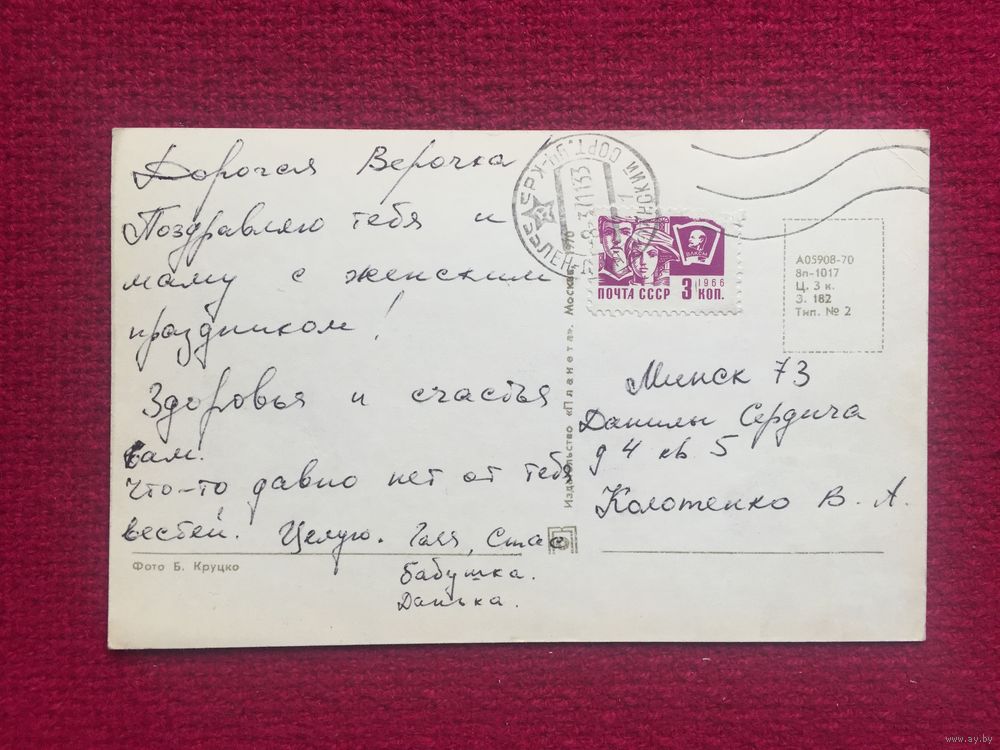 Дорогая Верочка
Поздравляю тебя и
маму с женским
праздником!
Здоровья и счастья
вам.
Что-то давно нет от тебя
вестей. Целую. Галя, Стас
Бабушка.
Данька.
Фото Б. Круцко
Издательство «Планета». Москва, 1970
ПОЧТА СССР 3 КОП.
1966
ВЛКСМ
А05908-70
8п-1017
Ц. 3 к.
З. 182
Тип. № 2
Минск 73
Данилы Сердича
д 4 кв. 5
Колотенко В. А.
www.ay.by